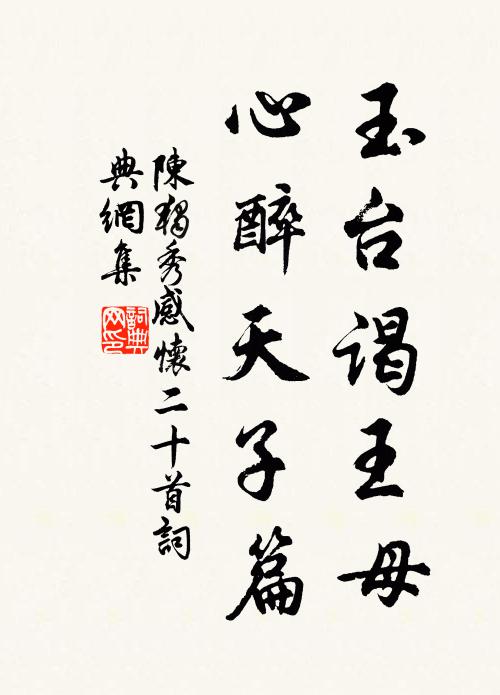 玉台谒王母
心醉天子篇
陳独秀感懷二十首詞
典網集
詞典
网印